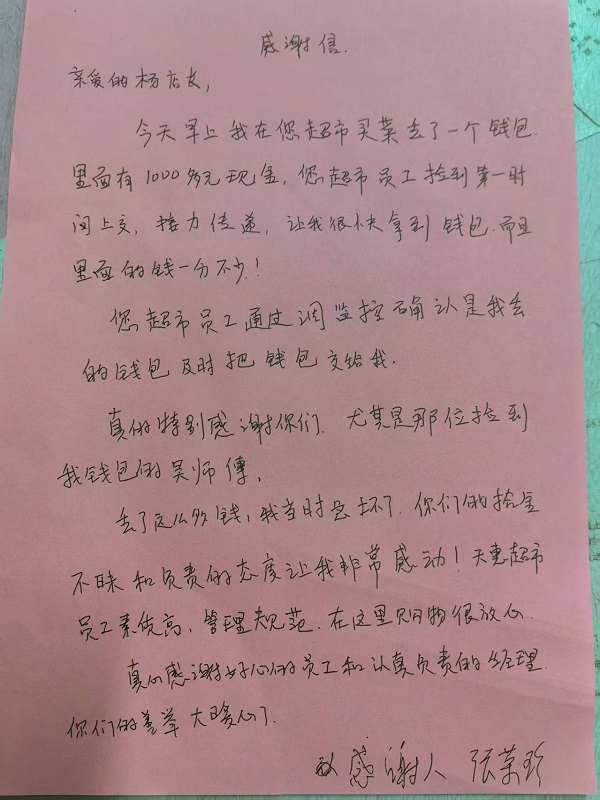 感谢信.
亲爱的杨店长,
今天早上我在您超市买菜丢了一个钱包.
里面有1000多元现金,您超市员工捡到第一时
间上交,接力传递,让我很快拿到钱包.而且
里面的钱一分不少!
您超市员工通过调监控确认是我丢
的钱包及时把钱包交给我.
真的特别感谢你们.尤其是那位捡到
我钱包的吴师傅.
丢了这么多钱,我当时急坏了.你们的拾金
不昧和负责的态度让我非常感动!天惠超市
员工素质高,管理规范.在这里购物很放心.
真心感谢好心的员工和认真负责的经理.
你们的善举太暖心了.
感谢人 张荣珍